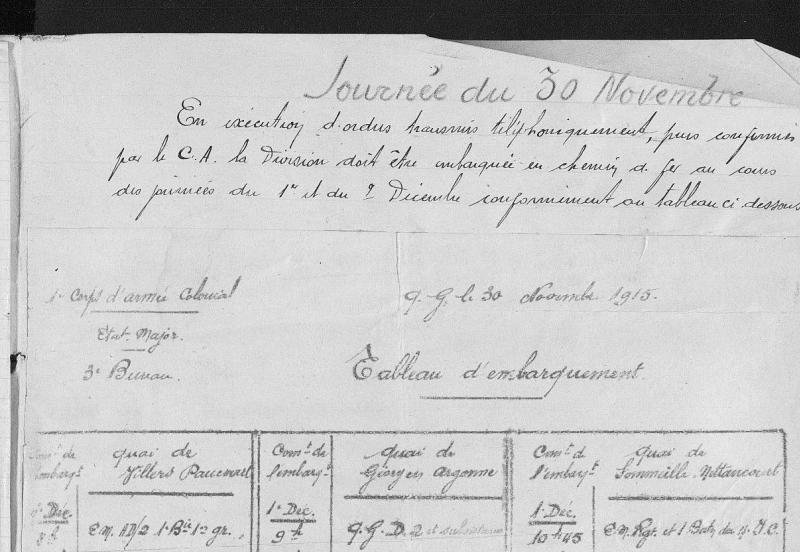 Journée du 30 Novembre
En exécution d'ordres transmis téléphoniquement, puis confirmés
par le C.A. la Division doit être embarquée en chemin de fer au cours
des journées du 1er et du 2 Décembre conformément au tableau ci-dessous
1er Corps d'armée Colonial
Q.G. le 30 Novembre 1915.
Etat-Major.
3e Bureau.
Tableau d'embarquement.
Comt de l'embarqt
quai de
Villers
Comt de
l'embarqt
Quai de
Givry en Argonne
Comt de
l'embarqt
Quai de
Sommeille-Nettancourt
1er Dec.
8h
E.M. AD/2 1 Bie 1er gr.
1er Dec.
9h
Q.G. D. 2 et
1 Dec.
10h45
E.M. Rgt. et 1 Batn du 4. I.C.